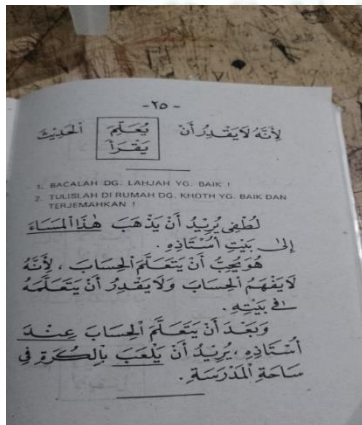 - ٢٥ -
لِأَنَّهُ لَا يَقْدِرُ أَنْ يُعَلِّمَ الْحَدِيْثَ
يَقْرَأَ
1. BACALAH DG. LAHJAH YG. BAIK !
2. TULISLAH DI RUMAH DG. KHOTH YG. BAIK DAN
TERJEMAHKAN !
لُطْفِى يُرِيْدُ أَنْ يَذْهَبَ هٰذَا الْمَسَاءَ
إِلَى بَيْتِ أُسْتَاذِهِ .
هُوَ يُحِبُّ أَنْ يَتَعَلَّمَ الْحِسَابَ ، لِأَنَّهُ
لَا يَفْهَمُ الْحِسَابَ وَلَا يَقْدِرُ أَنْ يَتَعَلَّمَهُ
فِى بَيْتِهِ .
وَبَعْدَ أَنْ يَتَعَلَّمَ الْحِسَابَ عِنْدَ
أُسْتَاذِهِ ، يُرِيْدُ أَنْ يَلْعَبَ بِالْكُرَةِ فِى
سَاحَةِ الْمَدْرَسَةِ .